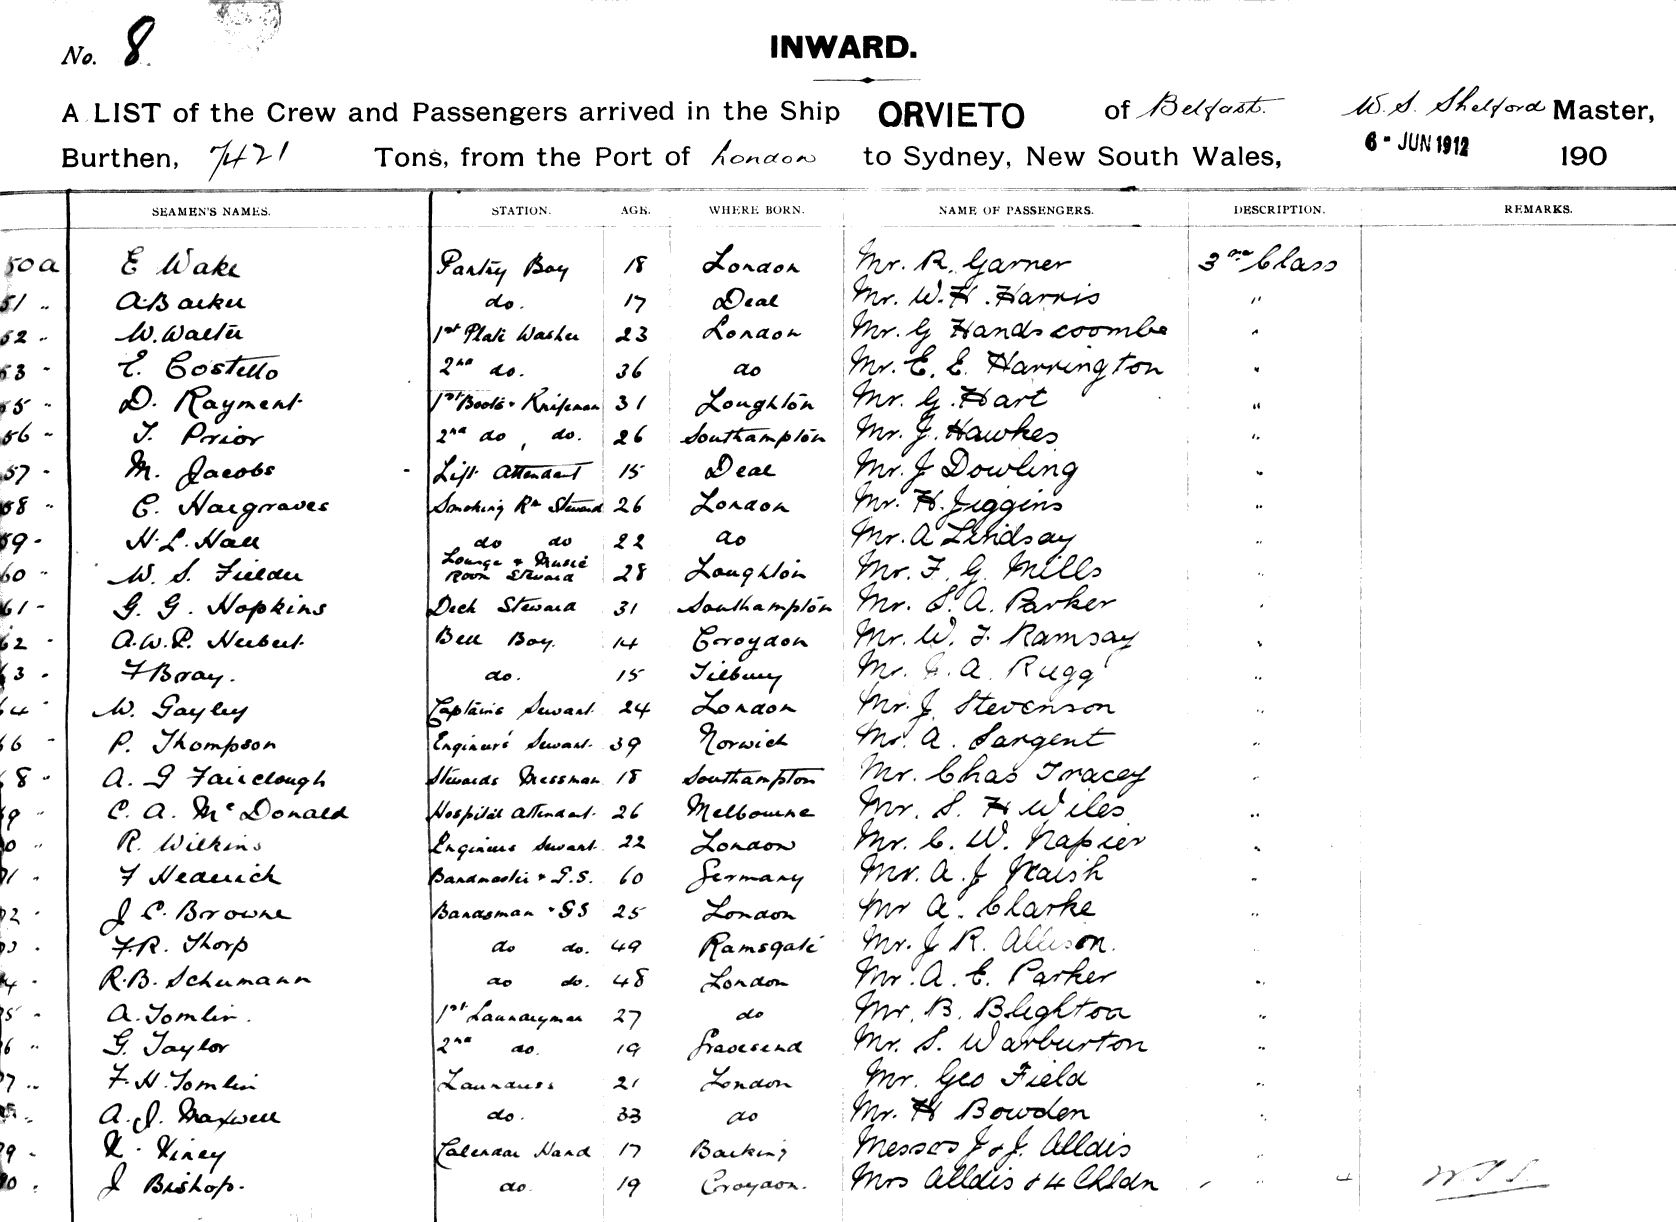 No. 8.
INWARD.
A LIST of the Crew and Passengers arrived in the Ship ORVIETO of Belfast. W. S. Shelford Master,
Burthen, 7421 Tons, from the Port of London to Sydney, New South Wales, 6 - JUN 1912 190
SEAMEN'S NAMES. STATION. AGE. WHERE BORN. NAME OF PASSENGERS. DESCRIPTION. REMARKS.
50a E Wake Pantry Boy 18 London Mr. R. Garner 3rd Class
51 " A. Barker do. 17 Deal Mr. W. H. Harris "
52 " W. Walter 1st Plate Washer 23 London Mr. G Handscoombe "
53 " E. Costello 2nd do. 36 do Mr. E. E. Harrington "
55 " D. Rayment 1st Boots & Knifeman 31 Loughton Mr. G. Hart "
56 " T. Prior 2nd do, do. 26 Southampton Mr. J. Hawkes "
57 " M. Jacobs - Lift Attendant 15 Deal Mr. J Dowling "
58 " C. Hargraves Smoking Rm Steward 26 London Mr. H. Jiggins "
59 " H. L. Hall do do 22 do Mr. A Lindsay "
60 " W. S. Fielder Lounge & Music Room Steward 28 Loughton Mr. F. G. Mills "
61 " G. G. Hopkins Deck Steward 31 Southampton Mr. S. A. Parker "
62 " A. W. P. Herbert Bell Boy. 14 Croydon Mr. W. J. Ramsay "
63 " F Bray. do. 15 Tilbury Mr. A. Rugg "
64 " W. Gayley Captains Servant. 24 London Mr. J. Stevenson "
66 " P. Thompson Engineers' Servant. 39 Norwich Mr. A. Sargent "
68 " A. G Fairclough Stewards Messman 18 Southampton Mr. Chas Tracey "
69 " C. A. McDonald Hospital Attendant. 26 Melbourne Mr. S. H Wiles "
0 " R. Wilkins Engineers Servant. 22 London Mr. C. W. Napier "
71 " F Hederick Bandmaster & G.S. 60 Germany Mr. A. J Naish "
72 " J C. Browne Bandsman & GS 25 London Mr A. Clarke "
F. R. Thorp do do. 49 Ramsgate Mr. J R. Allison. "
4 " R. B. Schumann do do. 48 London Mr. A. E. Parker "
5 " A. Tomlin. 1st Laundryman 27 do Mr. B. Blighton "
6 " G. Taylor 2nd do. 19 Gravesend Mr. S. Warburton "
7 " F. H. Tomlin Laundress 21 London Mr. Geo Field "
A. J. Maxwell do. 33 do Mr. H Bowden "
79 " K. Kiney Calendar Hand 17 Barking Messrs J & J. Alldis "
J Bishop. do. 19 Croydon. Mrs Alldis & 4 Chldn " 4